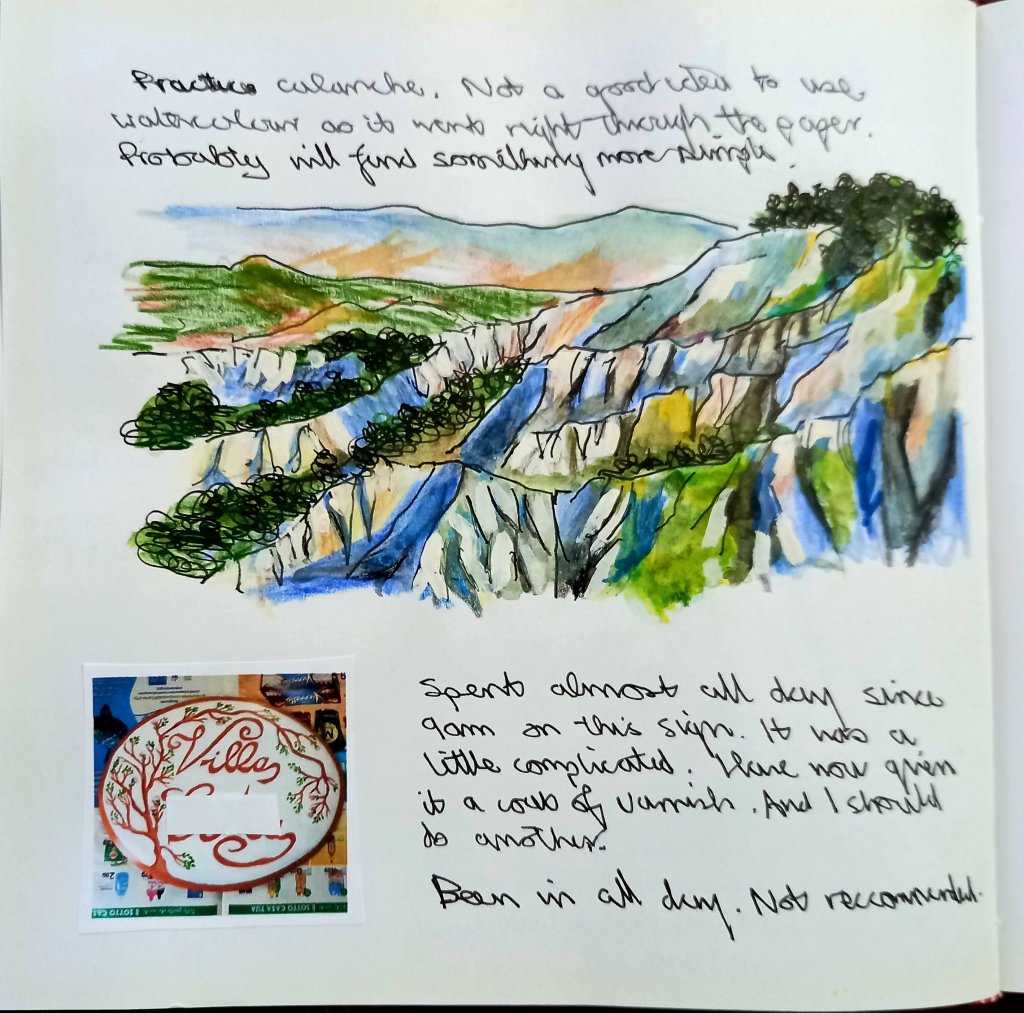 Practice calanche. Not a good idea to use
watercolour as it went right through the paper.
Probably will find something more simple.
Villa
Spent almost all day since
9am on this sign. It was a
little complicated. Have now given
it a coat of varnish. And I should
do another.
Been in all day. Not reccommended.
È SOTTO CASA TUA
È SOTTO CAS